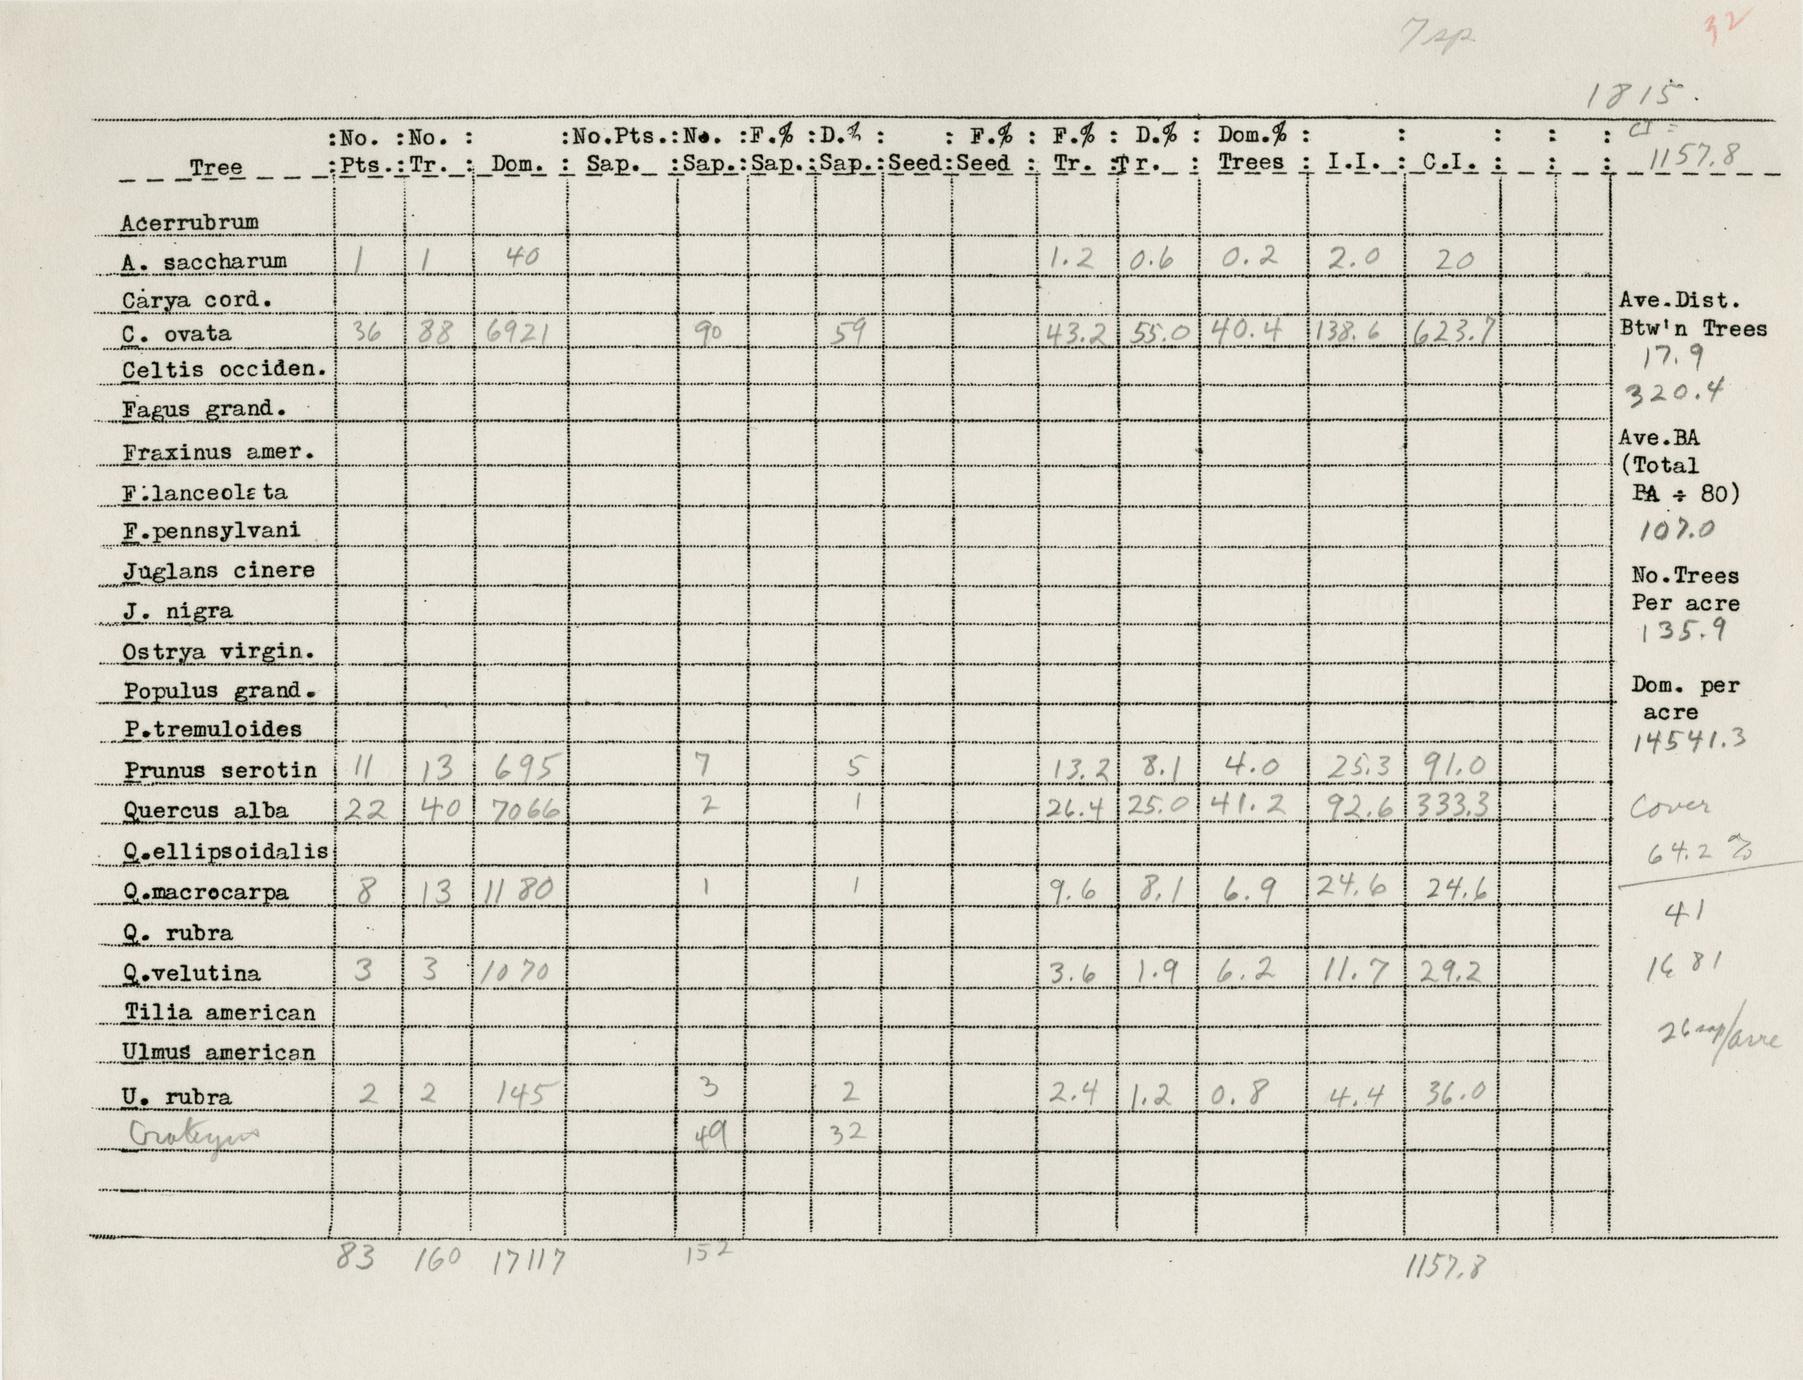 7 sp
32
1815.
:No. :No. : :No.Pts.:No. :F.% :D.% : : F.% : F.% : D.% : Dom.% : : : : : CI =
Tree :Pts.:Tr. : Dom. : Sap. :Sap.:Sap.:Sap.:Seed:Seed : Tr. :Tr. : Trees : I.I. : C.I. : : : 1157.8
Acerrubrum
A. saccharum 1 1 40 1.2 0.6 0.2 2.0 20
Carya cord. Ave.Dist.
C. ovata 36 88 6921 90 59 43.2 55.0 40.4 138.6 623.7 Btw'n Trees
17.9
Celtis occiden.
320.4
Fagus grand.
Ave.BA
Fraxinus amer.
(Total
F.lanceolata BA ÷ 80)
F.pennsylvani 107.0
Juglans cinere No.Trees
J. nigra Per acre
135.9
Ostrya virgin.
Populus grand. Dom. per
acre
P.tremuloides 14541.3
Prunus serotin 11 13 695 7 5 13.2 8.1 4.0 25.3 91.0
Quercus alba 22 40 7066 2 1 26.4 25.0 41.2 92.6 333.3 Cover
Q.ellipsoidalis 64.2 %
Q.macrocarpa 8 13 1180 1 1 9.6 8.1 6.9 24.6 24.6
41
Q. rubra
Q.velutina 3 3 1070 3.6 1.9 6.2 11.7 29.2 1681
Tilia american
26 sap/acre
Ulmus american
U. rubra 2 2 145 3 2 2.4 1.2 0.8 4.4 36.0
Crategus 49 32
83 160 17117 152 1157.8